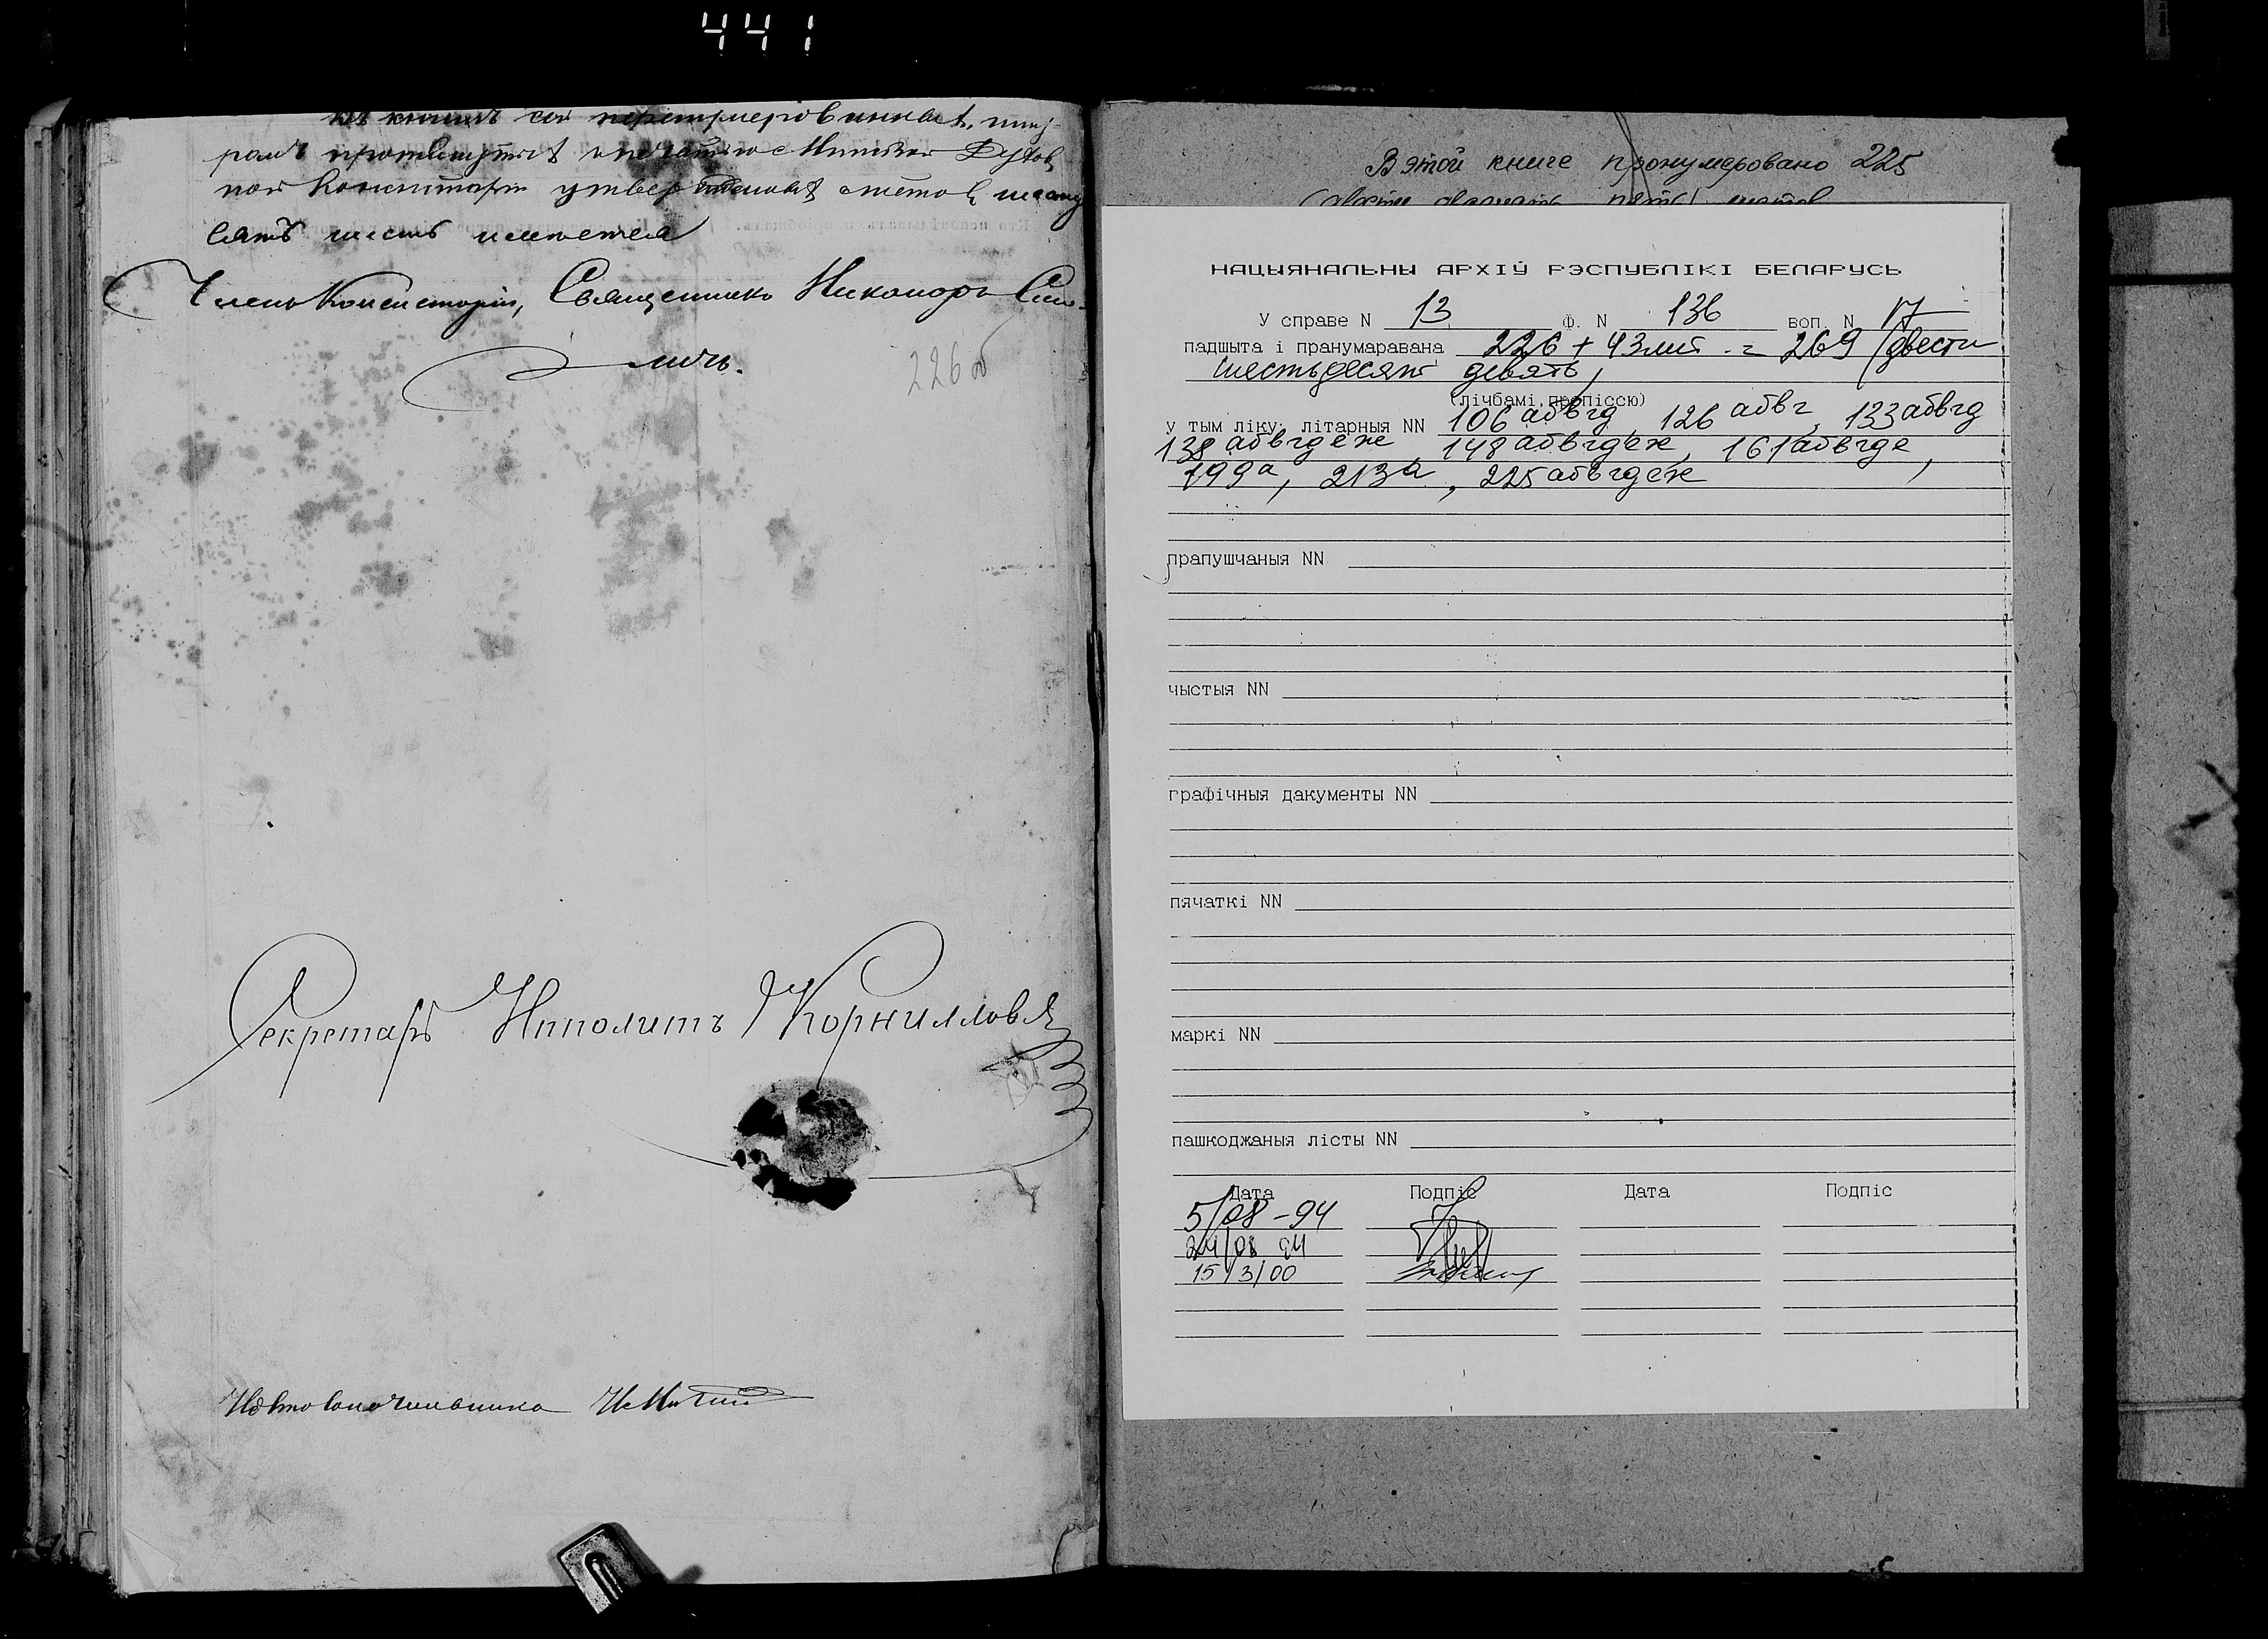 441
въ книгѣ сей перенумерованныхъ, шну-
ромъ прошнутыхъ и печатью Минской Духов
ной Консисторіи утвержденныхъ листовъ
сятъ шесть имѣется
Членъ Консисторіи, Священникъ Никаноръ Смо-
личъ.
226 об
Секретарь Ипполитъ Корнилловъ
Столоначальника
В этой книге пронумеровано 225
(двести двадцать пять) листов
НАЦЫЯНАЛЬНЫ АРХІЎ РЭСПУБЛІКІ БЕЛАРУСЬ
У справе N 13 ф. N 136 воп. N 17
падшыта і пранумаравана 226 + 43 лит = 269 (двести
шестьдесят девять)
(лічбамі, пропіссю)
у тым ліку: літарныя NN 106 абвгд, 126 абвг, 133 абвгд
138 абвгдеж, 148 абвгдеж, 161 абвгде,
199а, 213а, 225 абвгдеж
прапушчаныя NN
чыстыя NN
графічныя дакументы NN
пячаткі NN
маркі NN
пашкоджаныя лісты NN
Дата Подпіс Дата Подпіс
5/08-94
24/08 94
15/3/00